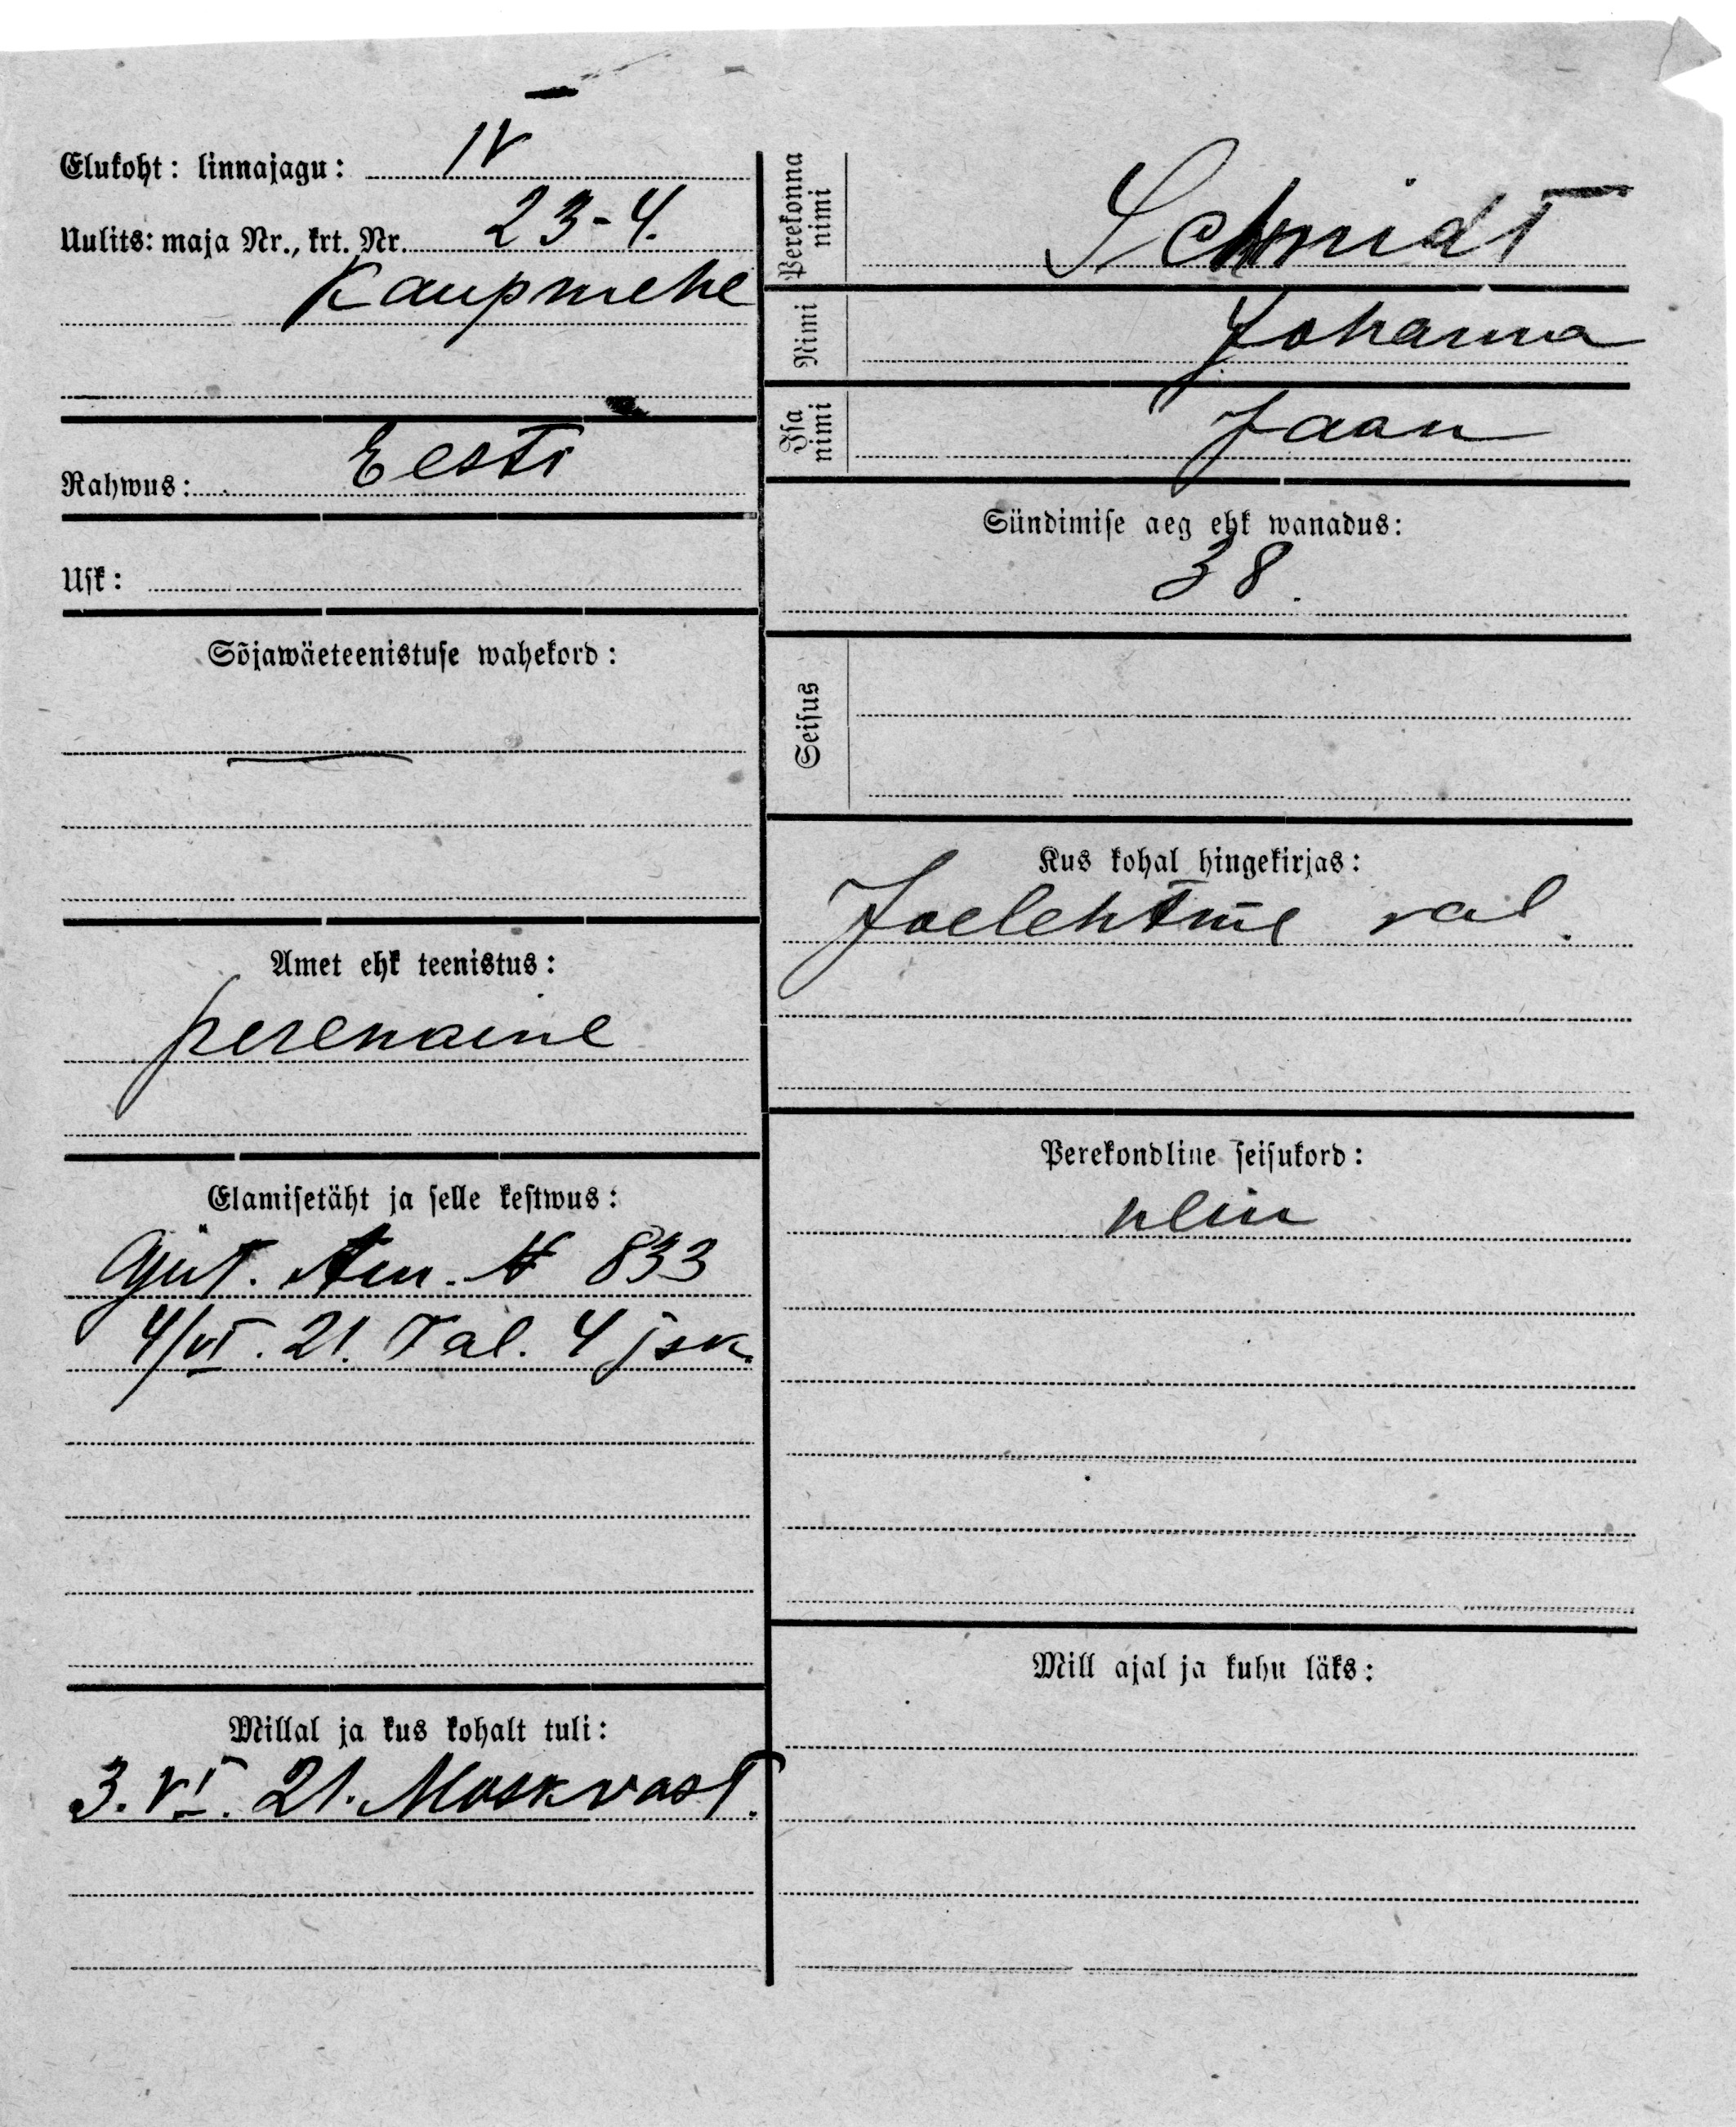 Elukoht: linnajagu: IV
Uulits: maja Nr., krt. Nr. 23-4.
Kaupmehe
Rahwus: Eesti
Usk:
Sõjawäeteenistuse wahekord:
Amet ehk teenistus:
perenaine
Elamisetäht ja selle kestwus:
Ajut. Tun. № 833
4/VI. 21. Tal. 4 jsk.
Millal ja kus kohalt tuli:
3. VI. 21. Moskvast.
Perekonna nimi Schmidt
Nimi Johanna
Isa nimi Jaan
Sündimise aeg ehk wanadus:
38.
Seisus
Kus kohal hingekirjas:
Joelehtme val.
Perekondline seisukord:
Mill ajal ja kuhu läks: